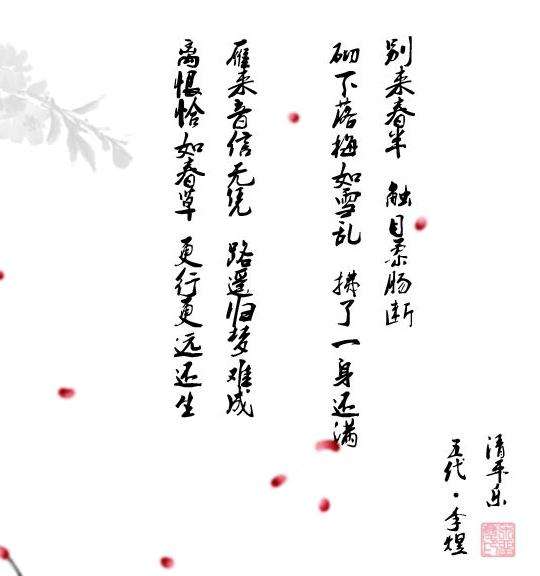 清平乐
五代·李煜
别来春半 触目柔肠断
砌下落梅如雪乱 拂了一身还满
雁来音信无凭 路遥归梦难成
离恨恰如春草 更行更远还生